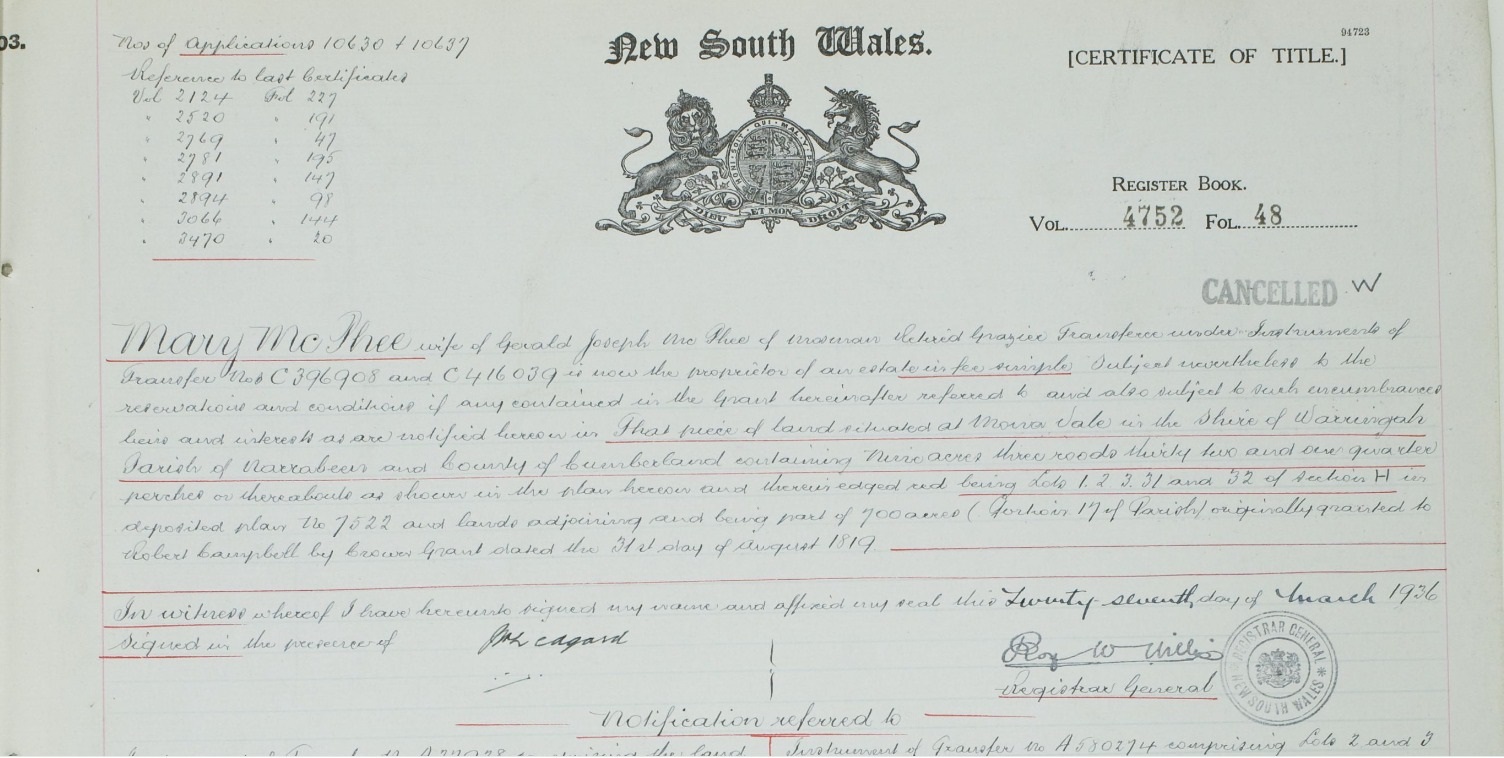 03.
Nos of Applications 10630 + 10637
Reference to last Certificates
Vol 2124 Fol 227
" 2520 " 191
" 2769 " 47
" 2781 " 195
" 2891 " 147
" 2894 " 98
" 3066 " 144
" 3470 " 20
New South Wales.
HONI SOIT QUI MAL Y PENSE
DIEU ET MON DROIT
94723
[CERTIFICATE OF TITLE.]
REGISTER BOOK.
VOL. 4752 FOL. 48
CANCELLED W
Mary McPhee wife of Gerald Joseph McPhee of Mosman Retired Grazier Transferee under Instruments of
Transfer Nos C396908 and C416039 is now the proprietor of an estate in fee simple Subject nevertheless to the
reservations and conditions if any contained in the Grant hereinafter referred to and also subject to such encumbrances
liens and interests as are notified hereon in That piece of land situated at Mona Vale in the Shire of Warringah
Parish of Narrabeen and County of Cumberland containing Nine acres three roods thirty two and one quarter
perches or thereabouts as shown in the plan hereon and therein edged red being Lots 1. 2. 3. 31 and 32 of Section H in
deposited plan No 7522 and lands adjoining and being part of 700 acres (Portion 17 of Parish) originally granted to
Robert Campbell by Crown Grant dated the 31st day of August 1819
In witness whereof I have hereunto signed my name and affixed my seal this Twenty-seventh day of March 1936
Signed in the presence of
Roy W Willis
Registrar General
REGISTRAR GENERAL * NEW SOUTH WALES *
Notification referred to
Instrument of Transfer No A580274 comprising Lots 2 and 3